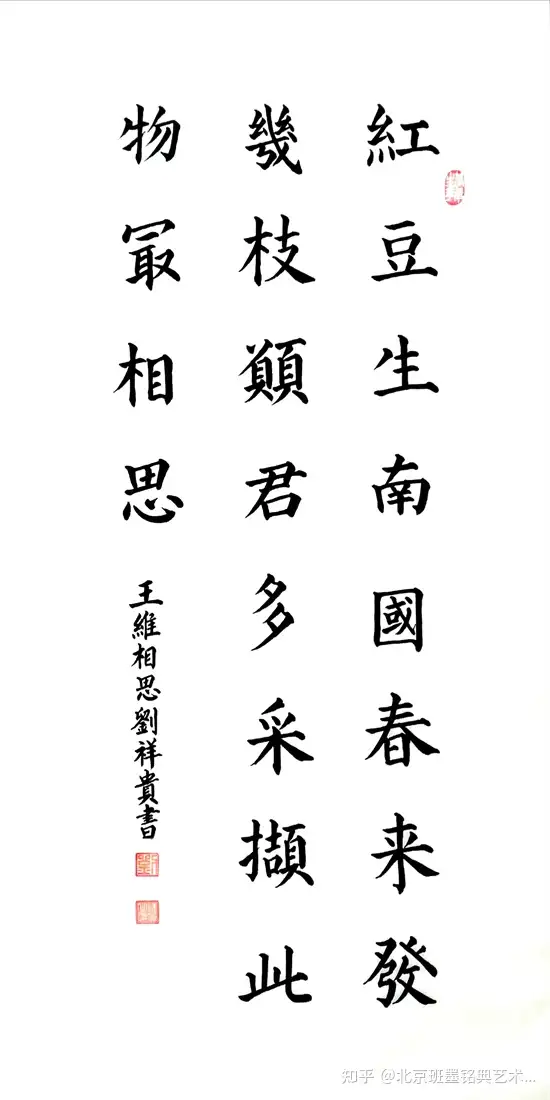 紅豆生南國春来發
幾枝願君多采擷此
物冣相思
王維相思劉祥貴書
知乎 @北京班墨铭典艺术...